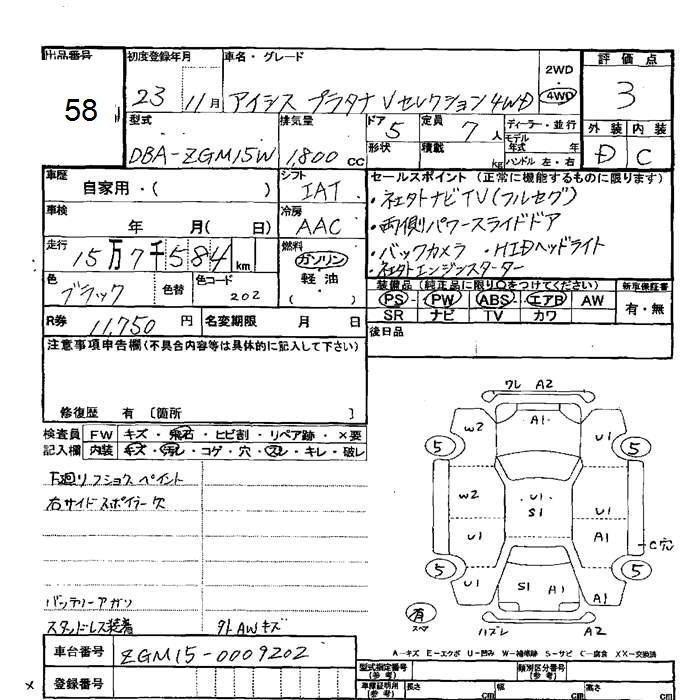 出品番号
58
初度登録年月
23 11月
車名・グレード
アイシス プラタナ Vセレクション 4WD
2WD
・
4WD
評価点
3
型式
DBA-ZGM15W
排気量
1,800 cc
ドア 5
形状
定員 7 人
積載 kg
ディーラー・並行
モデル年式 年
ハンドル 左・右
外装 内装
D C
車歴
自家用・( )
シフト
IAT
セールスポイント(正常に機能するものに限ります)
・社外ナビTV(フルセグ)
・両側パワースライドドア
・バックカメラ ・HIDヘッドライト
・社外エンジンスターター
車検
年 月( 日)
冷房
AAC
走行
15万7千584km
燃料
ガソリン
・
軽油
・
( )
色
ブラック
色替
色コード
202
装備品(純正品に限り○をつけてください)
新車保証書
PS・PW・ABS・エアB AW
SR ナビ TV カワ
有・無
R券 11,750 円
名変期限 月 日
後日品
注意事項申告欄(不具合内容等は具体的に記入して下さい)
修復歴 有〔箇所 〕
検査員 FW キズ・飛石・ヒビ割・リペア跡・×要
記入欄 内装 キズ・汚レ・コゲ・穴・スレ・キレ・破レ
下廻リ フショク ペイント
右サイドスポイラー欠
バッテリーアガリ
スタッドレス装着 外AWキズ
ワレ A2
W2 A1 U1
5 5
W2 U1 S1
U1 A1
C穴
5 5
U1 S1 A1 A1
有
スペア
ハズレ A2
A-キズ E-エクボ U-凹み W-補修跡 S-サビ C-腐食 XX-交換済
車台番号 ZGM15-0009202
登録番号
型式指定番号
(参考)
類別区分番号
(参考)
車庫証明用
(参考)
長さ cm
幅 cm
高さ cm
×